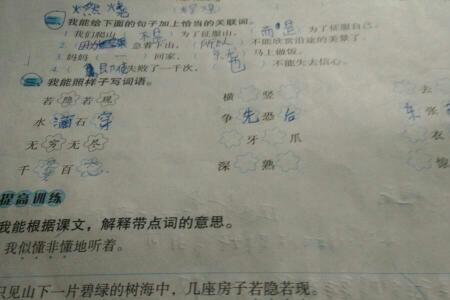 火然 烧
二、我能给下面的句子加上恰当的关联词。
1. 我们爬山 不是 为了征服山, 而是 为了征服自己。
2. 因为 急着下山, 所以 不能欣赏沿途的美景了。
3. 妈妈 回家, 马上做饭。
4. 失败了一千次, 也 不能失去信心。
三、我能照样子写词语。
若隐若现 横 竖 去
水滴石穿 争先恐后 东张
无穷无尽 牙 爪 衣
千 百 深 熟
提高训练
我能根据课文,解释带点词的意思。
我似懂非懂地听着。
只见山下一片碧绿的树海中,几座房子若隐若现。